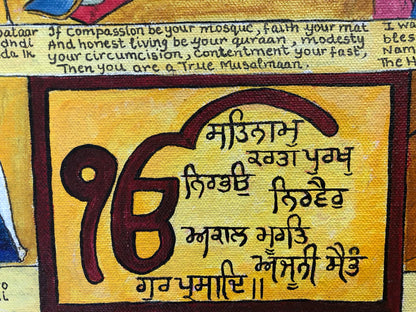 If compassion be your mosque, faith your mat
And honest living be your quraan, modesty
your circumcision, contentment your fast,
Then you are a True Musalmaan.
ੴ ਸਤਿਨਾਮੁ
ਕਰਤਾ ਪੁਰਖੁ
ਨਿਰਭਉ ਨਿਰਵੈਰ
ਅਕਾਲ ਮੂਰਤਿ
ਅਜੂਨੀ ਸੈਭੰ
ਗੁਰ ਪ੍ਰਸਾਦਿ ॥